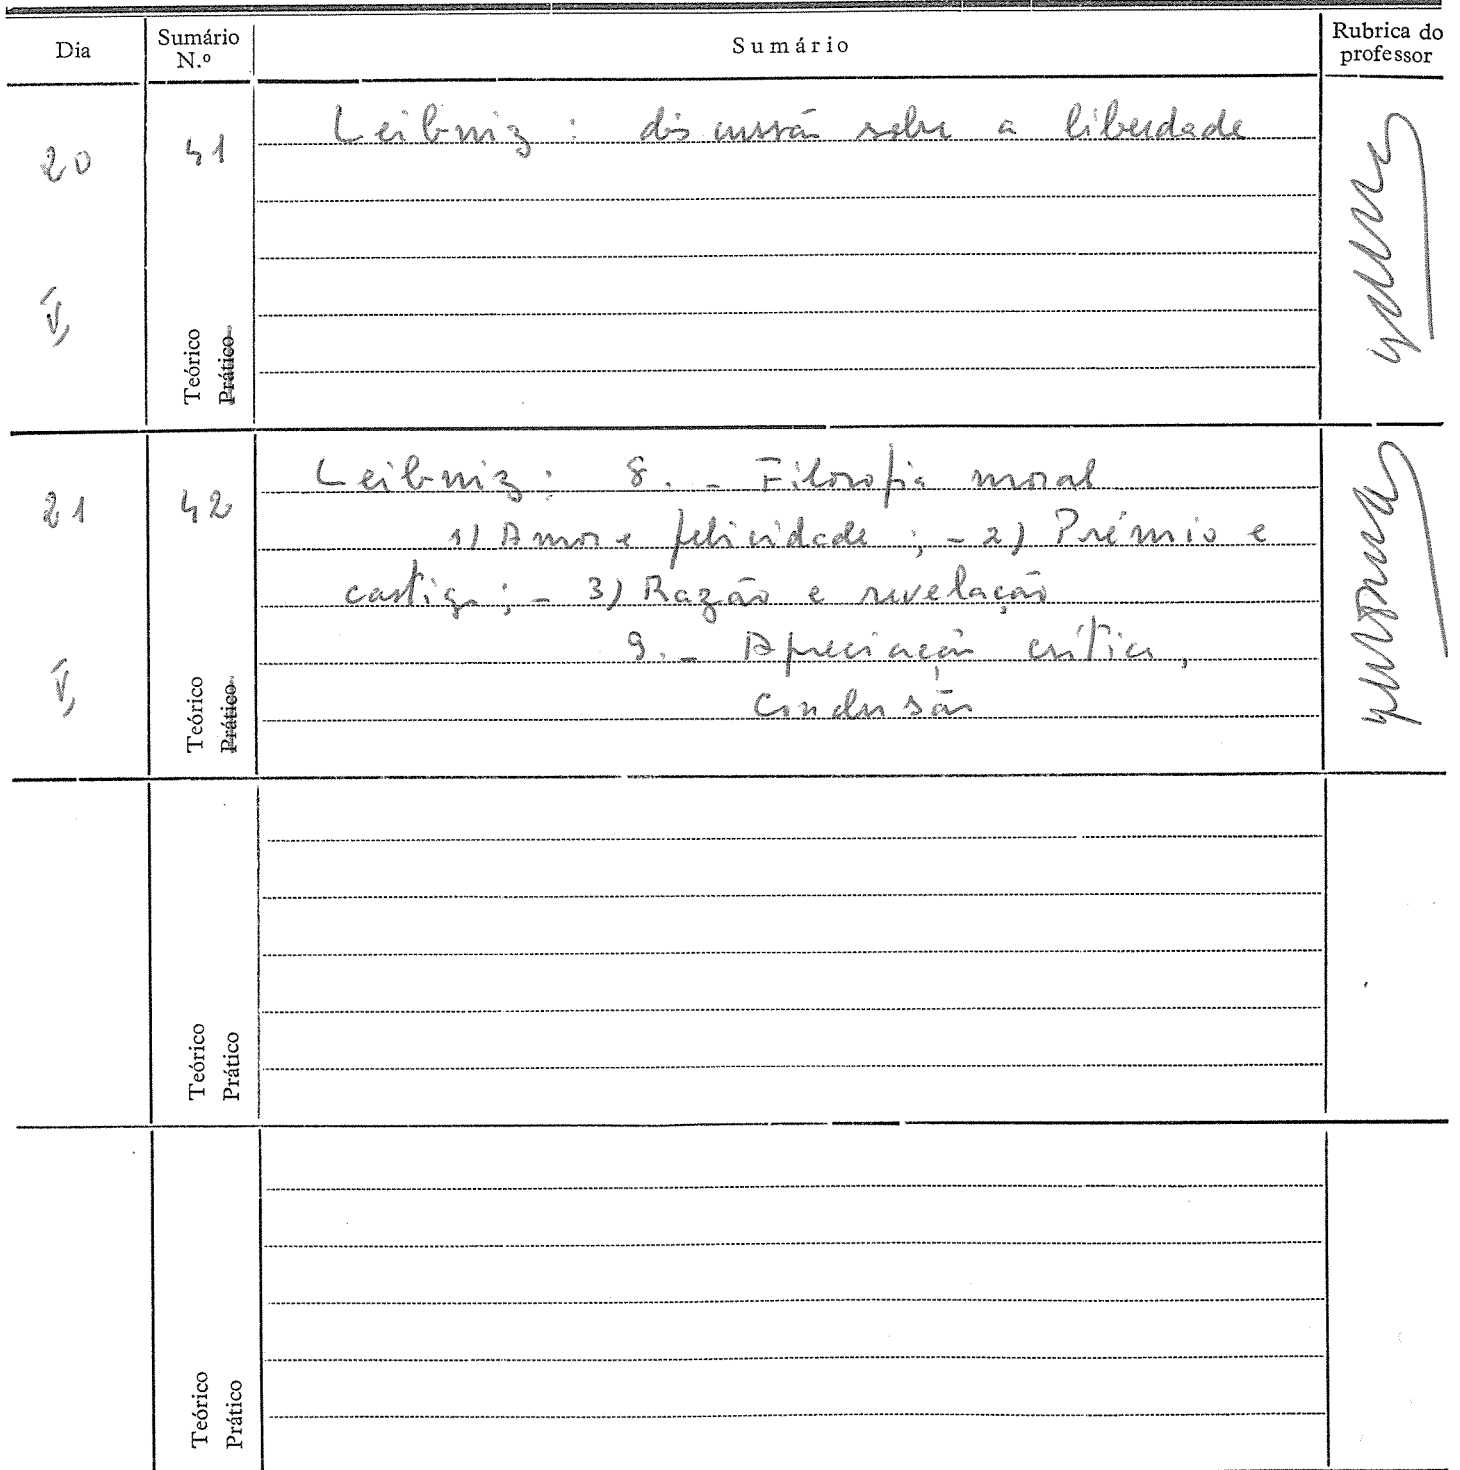 Dia
Sumário N.º
Sumário
Rubrica do professor
20
V,
41
Teórico
Prático
Leibniz : discussão sobre a liberdade
21
V,
42
Teórico
Prático
Leibniz : 8. - Filosofia moral
1) Amor e felicidade ; - 2) Prémio e
castigo ; - 3) Razão e revelação
9. - Apreciação crítica,
Conclusão
Teórico
Prático
Teórico
Prático